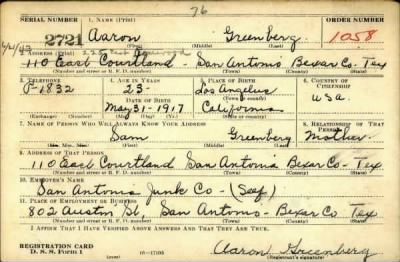 76
SERIAL NUMBER 1. NAME (Print) ORDER NUMBER
2721 Aaron Greenberg 1058
(First) (Middle) (Last)
2. ADDRESS (Print)
110 East Courtland - San Antonio Bexar Co - Tex
(Number and street or R. F. D. number) (Town) (County) (State)
3. TELEPHONE 4. AGE IN YEARS 5. PLACE OF BIRTH 6. COUNTRY OF CITIZENSHIP
P-1832 23- Los Angelus
DATE OF BIRTH (Town or county)
May 31 - 1917 California USA.
(Exchange) (Number) (Mo.) (Day) (Yr.) (State or country)
7. NAME OF PERSON WHO WILL ALWAYS KNOW YOUR ADDRESS 8. RELATIONSHIP OF THAT PERSON
Sam Greenberg Mother
(Mr., Mrs., Miss) (First) (Middle) (Last)
9. ADDRESS OF THAT PERSON
110 East Courtland San Antonio Bexar Co - Tex
(Number and street or R. F. D. number) (Town) (County) (State)
10. EMPLOYER'S NAME
San Antonio Junk Co - (Self)
11. PLACE OF EMPLOYMENT OR BUSINESS
802 Austin St, San Antonio - Bexar Co Tex
(Number and street or R. F. D. number) (Town) (County) (State)
I AFFIRM THAT I HAVE VERIFIED ABOVE ANSWERS AND THAT THEY ARE TRUE.
REGISTRATION CARD
D. S. S. Form 1 16-17105 Aaron Greenberg
(Registrant's signature)